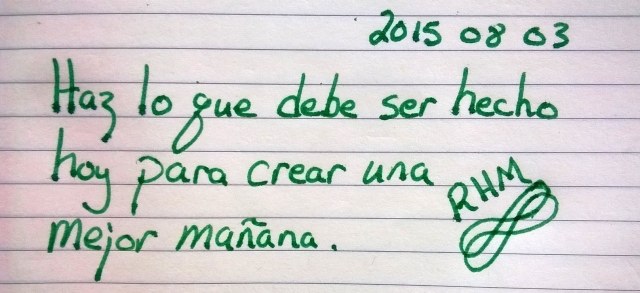 2015 08 03
Haz lo que debe ser hecho
hoy para crear una
mejor mañana.
RHM